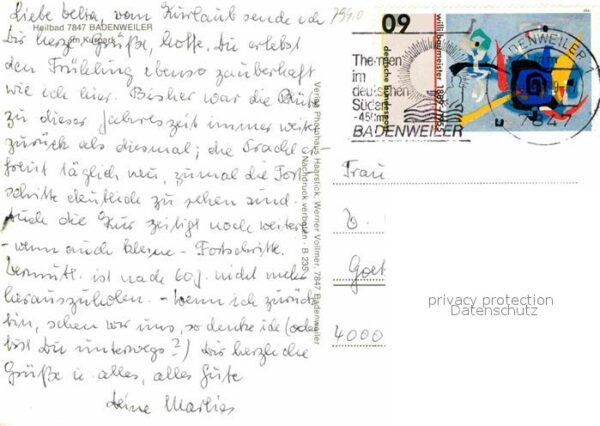 Liebe
vom Kurlaub sende ich
Heilbad 7847 BADENWEILER
am Kurpark
Dir herzl. Grüße, hoffe, Du erlebst
den Frühling ebenso zauberhaft
wie ich hier. Bisher war die Blüte
zu dieser Jahreszeit immer weiter
zurück als diesmal; die Sache er-
freut täglich neu, zumal die Fort-
schritte deutlich zu sehen sind.
Auch die Kur zeitigt noch weitere
- wenn auch kleine - Fortschritte.
Vermutl. ist nach 60 J. nicht mehr
herauszuholen. - Wenn ich zurück
bin, sehen wir uns, so denke ich (oder
bist Du unterwegs?) Dir herzliche
Grüße u. alles, alles Gute
deine Marlies
Verlag Photohaus Haarstick, Werner Vollmer, 7847 Badenweiler
Nachdruck verboten - B 239
60
willi baumeister 1889-1955
deutsche bundespost
Thermen
im
deutschen
Süden
-450m
BADENWEILER
BADENWEILER
7847
Frau
Goet
4000
privacy protection
Datenschutz